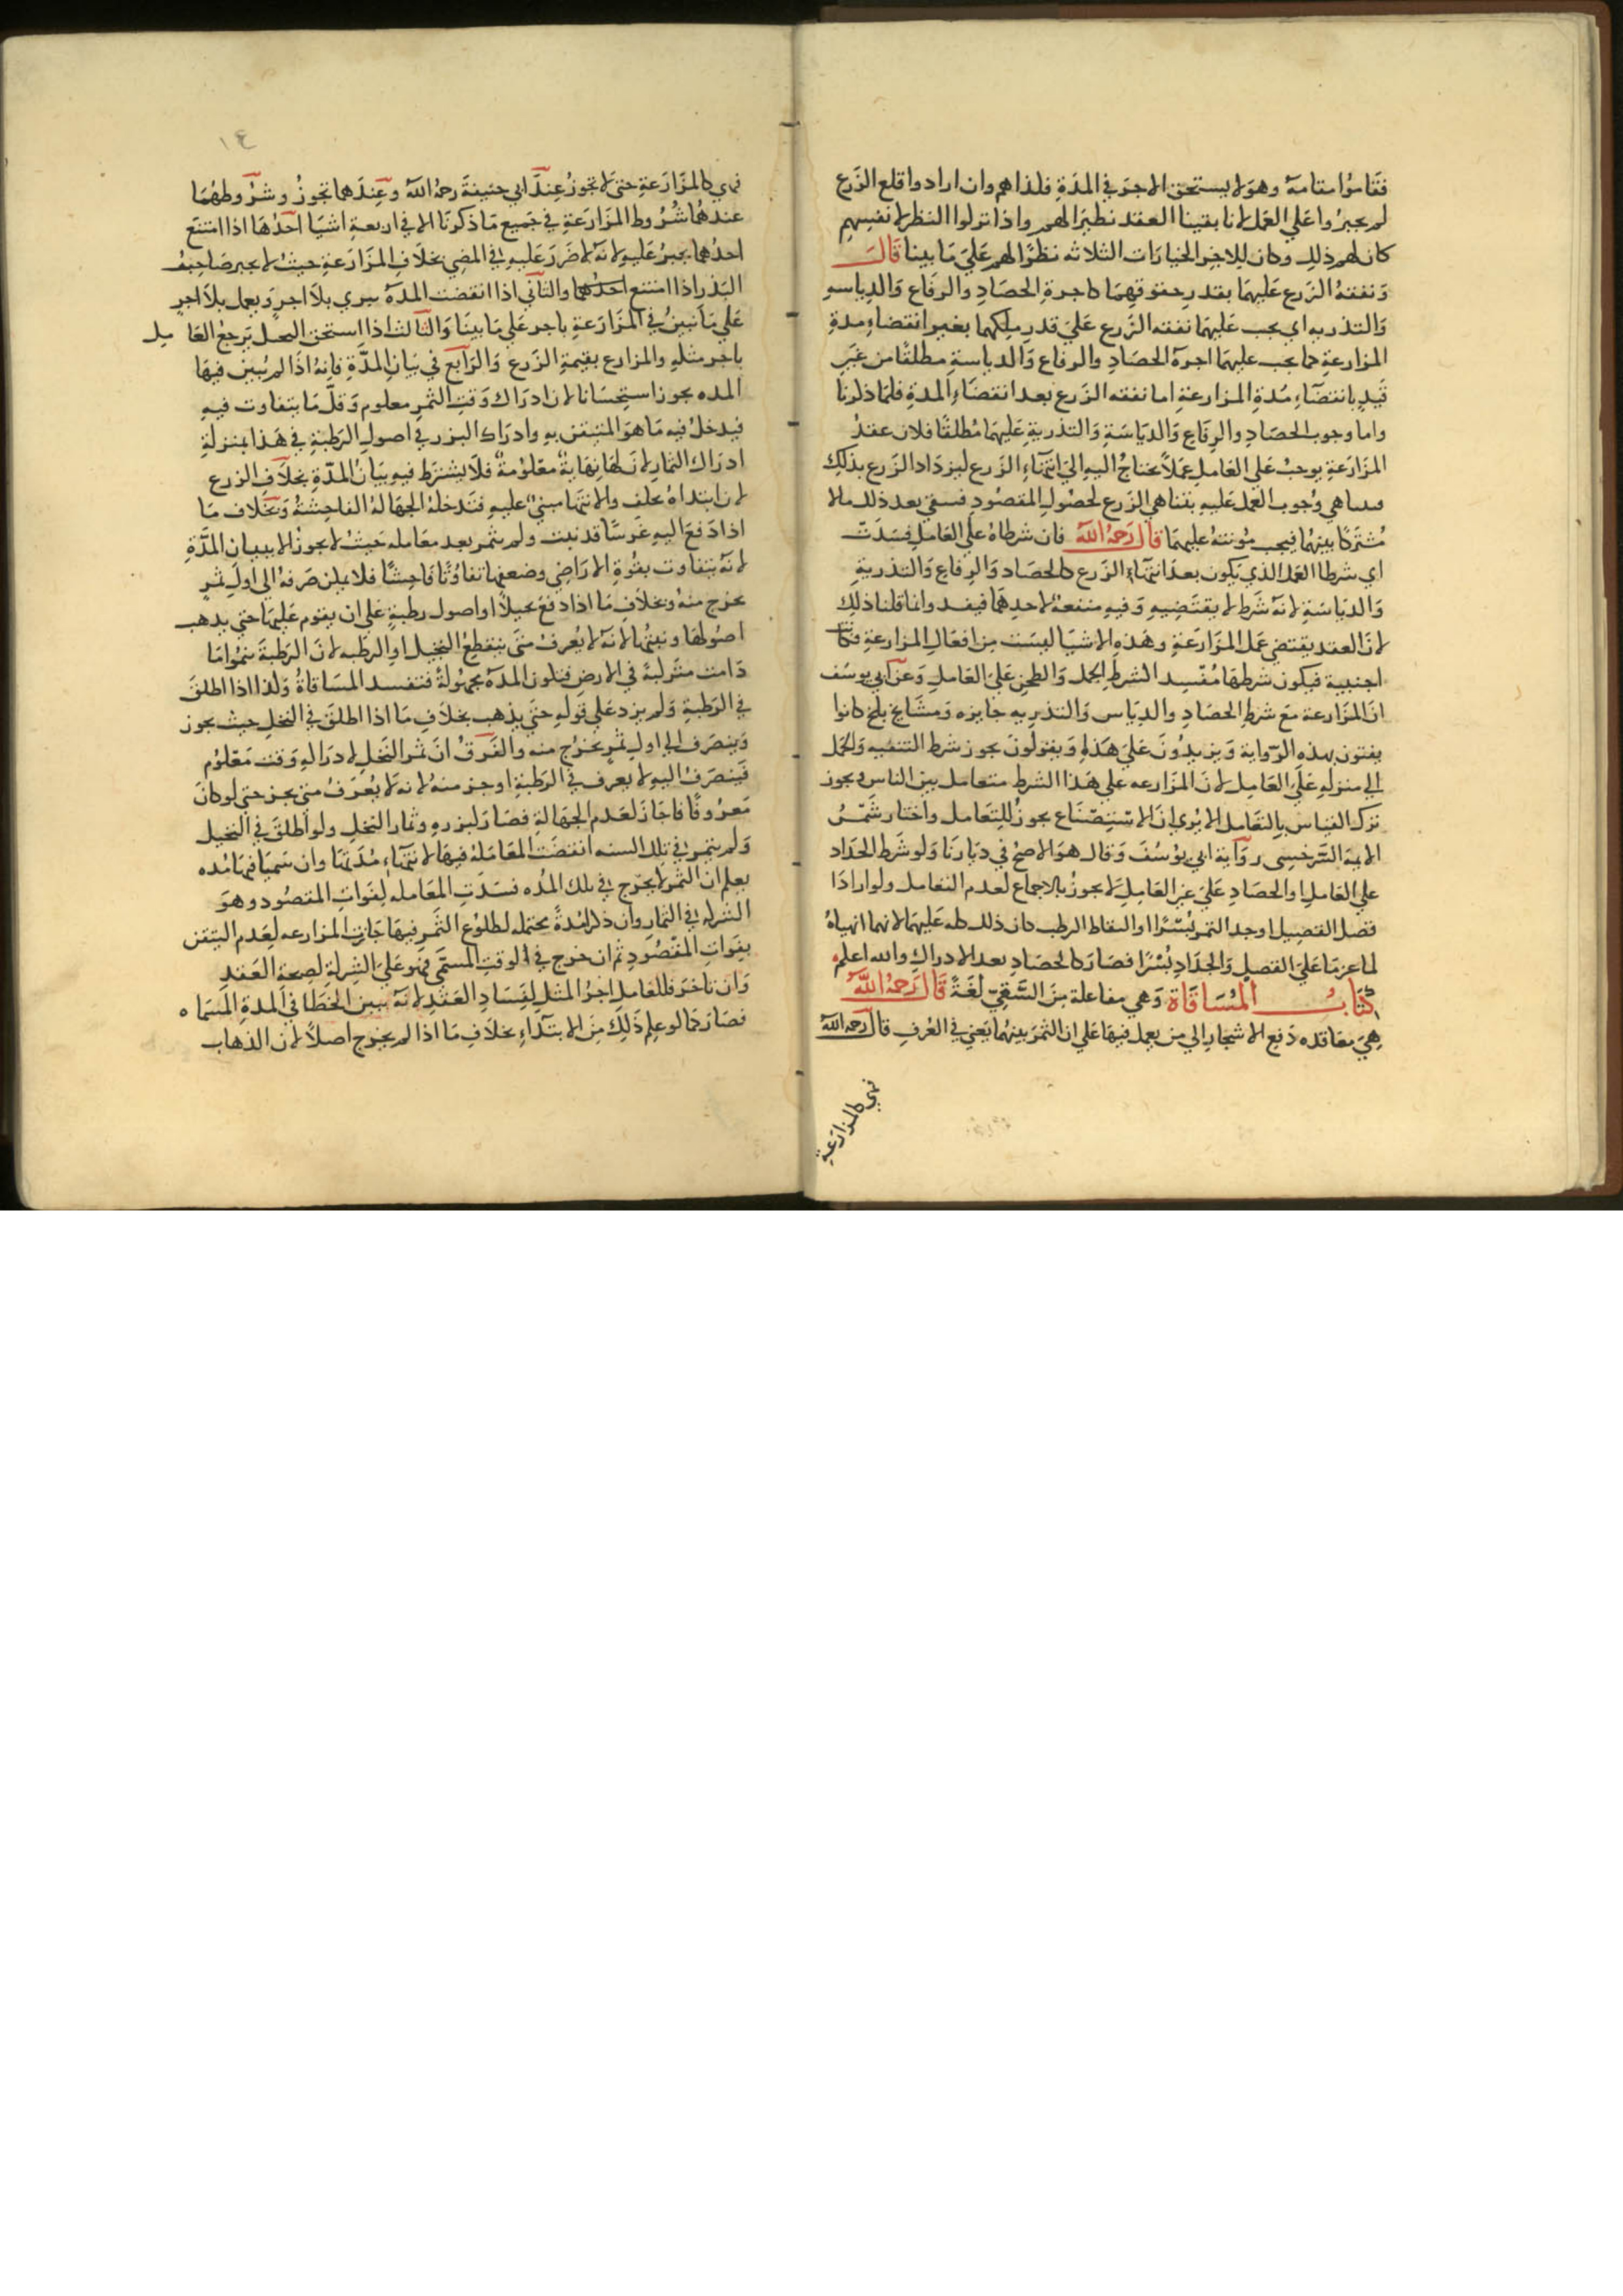 فقاموا مقامه وهو لا يستحق الاجر في المدة فلذا هم وان ارادوا قلع الزرع
لم يجبروا على العمل لانا بقينا العقد نظرا لهم واذا تركوا النظر لانفسهم
كان لهم ذلك وكان للاخر الخيارات الثلاثه نظرا لهم على ما بينا قال
ونفقة الزرع عليهما بقدر حقوقهما كاجرة الحصاد والرفاع والدياسه
والتذريه اي يجب عليهما نفقه الزرع على قدر ملكهما بغير انقضاء مدة
المزارعة كما يجب عليهما اجرة الحصاد والرفاع والدياسة مطلقا من غير
قيد بانقضاء مدة المزارعة اما نفقه الزرع بعد انقضاء المدة فلما ذكرنا
واما وجوب الحصاد والرفاع والدياسة والتذرية عليهما مطلقا فلان عقد
المزارعة يوجب على العامل عملا يحتاج اليه الى انتهاء الزرع ليزداد الزرع بذلك
وجوب العمل عليه بتناهي الزرع لحصول المقصود فبقي بعد ذلك مالا
مشتركا بينهما فيجب مونته عليهما قال رحمه الله فان شرطاه على العامل فسدت
اي شرطا العمل الذي يكون بعد انتهاء الزرع كالحصاد والرفاع والتذرية
والدياسة لانه شرط لا يقتضيه وفيه منفعة لاحدهما فيفسد وانما قلنا ذلك
لان العقد يقتضي عمل المزارعة وهذه الاشيا ليست من افعال المزارعة فكانت
اجنبية فيكون شرطها مفسدا كشرط الحمل والطحن على العامل وعن ابي يوسف
ان المزارعة مع شرط الحصاد والدياس والتذريه جايزه ومشايخ بلخ كانوا
يفتون بهذه الرواية ويزيدون على هذا ويقولون يجوز شرط التنقيه والحمل
الى منزله على العامل لان المزارعه على هذا الشرط متعامل بين الناس ويجوز
ترك القياس بالتعامل الا يرى ان الاستصناع يجوز للتعامل واختار شمس
الايمة السرخسى رواية ابي يوسف وقال هو الاصح في ديارنا ولو شرط الجداد
على العامل او الحصاد على غير العامل لا يجوز بالاجماع لعدم التعامل ولو ارادا
فصل القصيل او جد التمر بسرا او التقاط الرطب كان ذلك كله عليهما لانهما انهياه
لما عزما على الفصل والجداد بسرا فصار كالحصاد بعد الادراك والله اعلم
كتاب المساقاة وهي مفاعلة من السقي لغة قال رحمه الله
هي معاقده دفع الاشجار الى من يعمل فيها على ان الثمر بينهما يعني في العرف قال رحمه الله
فهي كالمزارعة
١٤
فهي كالمزارعة حتى لا تجوز عند ابي حنيفة رحمه الله وعندهما تجوز وشروطهما
عندهما شروط المزارعة في جميع ما ذكرنا الا في اربعة اشيا احدها اذا امتنع
احدهما يجبر عليه لانه لا ضرر عليه في المضي بخلاف المزارعة حيث لا يجبر صاحب
البذر اذا امتنع احدهما والثاني اذا انقضت المدة يترك بلا اجر ويعمل بلا اجر
على ما نبين في المزارعة باجر على ما بينا والثالث اذا استحق النخل يرجع العامل
باجر مثله والمزارع بقيمة الزرع والرابع في بيان المدة فانه اذا لم يبين فيها
المده يجوز استحسانا لان ادراك وقت الثمر معلوم وقل ما يتفاوت فيه
فيدخل فيه ما هو المتيقن به وادراك البزر في اصول الرطبة في هذا بمنزلة
ادراك الثمار لان لها نهاية معلومة فلا يشترط فيه بيان المدة بخلاف الزرع
لان ابتداه يختلف والانتها مبني عليه فتدخله الجهالة الفاحشة وبخلاف ما
اذا دفع اليه غرسا قد نبت ولم يثمر بعد معامله حيث لا يجوز الا ببيان المدة
لانه يتفاوت بقوة الاراضي وضعفها تفاوتا فاحشا فلا يمكن صرفه الى اول ثمر
يخرج منه وبخلاف ما اذا دفع نخيلا او اصول رطبة على ان يقوم عليها حتى يذهب
اصولها ونبتها لانه لا يعرف متى ينقطع النخيل او الرطبه لان الرطبة تنمو ما
دامت متروكة في الارض فتكون المدة مجهولة فتفسد المساقاة وكذا اذا اطلق
في الرطبة ولم يزد على قوله حتى يذهب بخلاف ما اذا اطلق في النخل حيث يجوز
وينصرف الى اول ثمر يخرج منه والفرق ان ثمر النخل لادراكه وقت معلوم
فينصرف اليه لا يعرف في الرطبة اوجز منه لانه لا يعرف متى يجز حتى لو كان
معروفا فاجاز لعدم الجهالة فصار كبزره وثمار النخل ولو اطلق في النخيل
ولم يثمر في تلك السنه انقضت المعاملة فيها لانتهاء مدتها وان سميا فيها مده
يعلم ان الثمر لا يخرج في تلك المده فسدت المعامله لفوات المقصود وهو
الشركه في الثمار وان ذكرا مدة يحتمله لطلوع الثمر فيها جازت المزارعه لعدم التيقن
بفوات المقصود ثم ان خرج في الوقت المسمى فهو على الشركة لصحة العقد
وان تاخر فللعامل اجر المثل لفساد العقد لانه تبين الخطا في المدة المسماه
فصار كما لو علم ذلك من الابتداء بخلاف ما اذا لم يخرج اصلا لان الذهاب